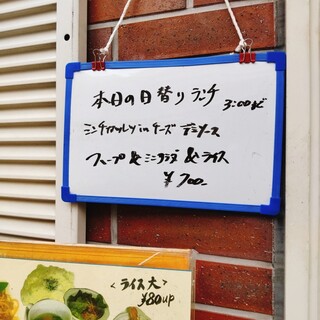 本日の日替りランチ 3:00まで
ミンチカツレツinチーズ デミソース
スープ&ミニサラダ&ライス
¥700-
<ライス大>
¥80up